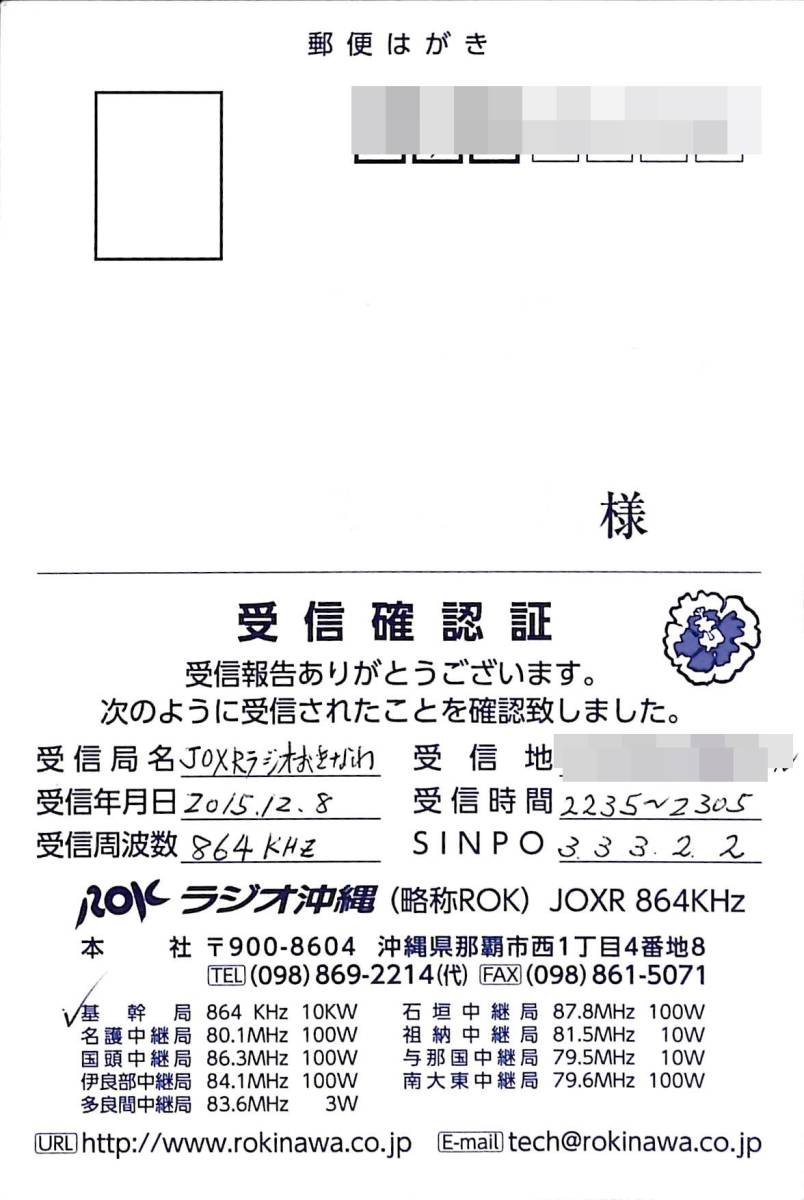 郵便はがき
様
受信確認証
受信報告ありがとうございます。
次のように受信されたことを確認致しました。
受信局名 JOXRラジオおきなわ 受信地
受信年月日 2015.12.8 受信時間 2235~2305
受信周波数 864KHz SINPO 3.3 3.2.2
ROK ラジオ沖縄 (略称ROK) JOXR 864KHz
本社 〒900-8604 沖縄県那覇市西1丁目4番地8
TEL (098) 869-2214(代) FAX (098) 861-5071
基幹局 864 KHz 10KW 石垣中継局 87.8MHz 100W
名護中継局 80.1MHz 100W 祖納中継局 81.5MHz 10W
国頭中継局 86.3MHz 100W 与那国中継局 79.5MHz 10W
伊良部中継局 84.1MHz 100W 南大東中継局 79.6MHz 100W
多良間中継局 83.6MHz 3W
URL http://www.rokinawa.co.jp E-mail tech@rokinawa.co.jp